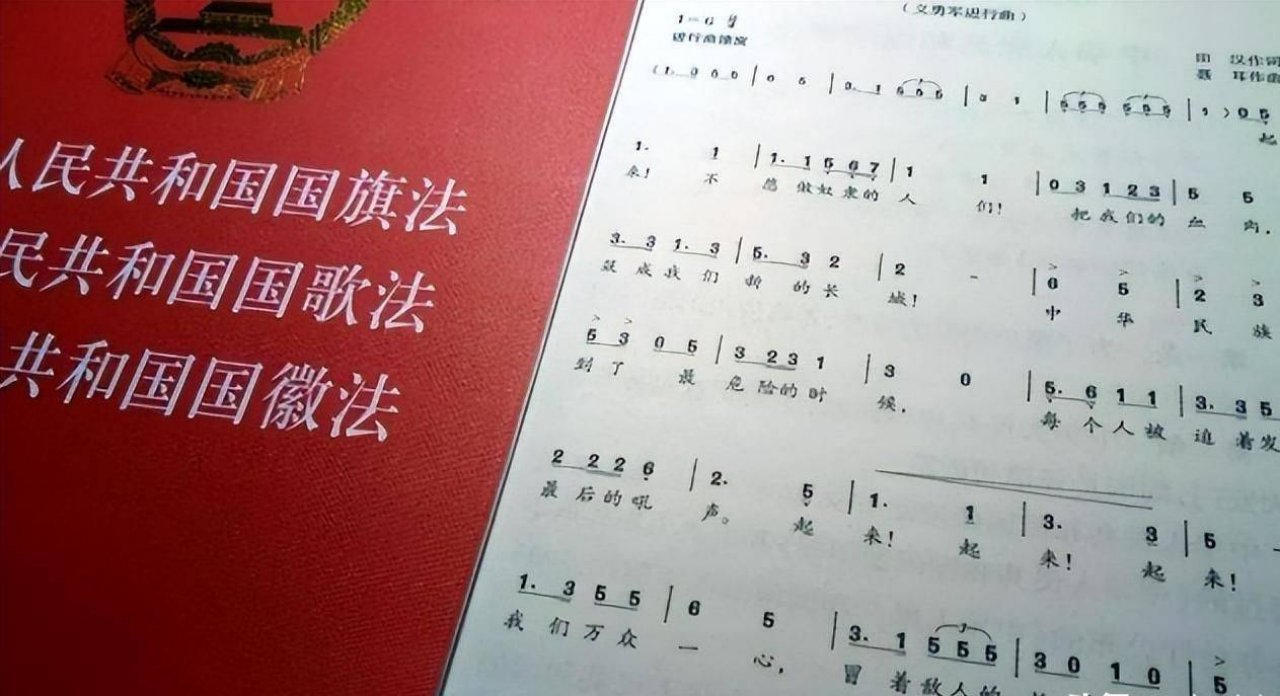 人民共和国国旗法
民共和国国歌法
共和国国徽法
（义勇军进行曲）
1=G 2/4
进行曲速度
田 汉作词
聂 耳作曲
(1. 3 5 5 | 6 5 |
起
1. 1 | 1. 1 5 6 7 | 1 1 | 0 3 1 2 3 | 5 5
来！ 不 愿 做奴隶的 人 们！ 把我们的 血 肉，
3. 3 1. 3 | 5. 3 2 | 2 - | 6 5 | 2 3
筑 成我 们 新 的长 城！ 中 华 民 族
5 3 0 5 | 3 2 3 1 | 3 0 | 5. 6 1 1 | 3. 3 5
到了 最 危险的时 候， 每 个人被 迫 着发
2 2 2 6 | 2. 5 | 1. 1 | 3. 3 | 5 -
最后的吼 声。 起 来！ 起 来！ 起 来！
1. 3 5 5 | 6 5 | 3. 1 5 5 5 | 3 0 1 0 | 5
我 们万众 一 心， 冒 着敌人的